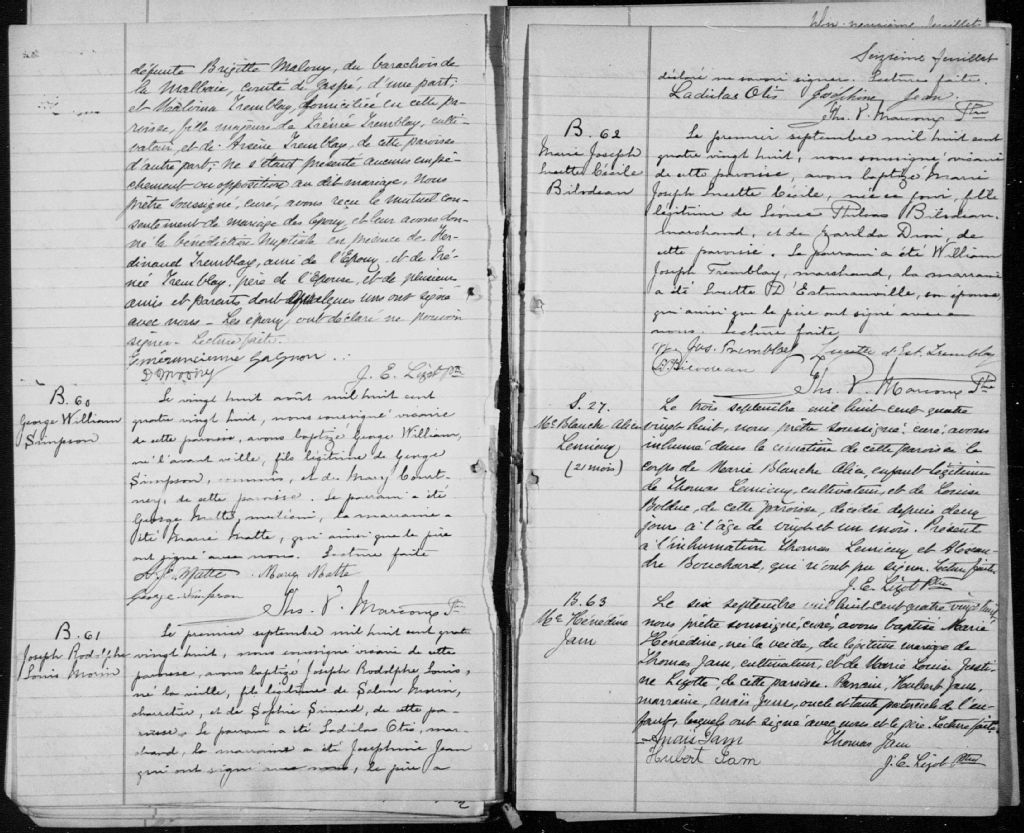 défunte Brigitte Malony, du barachois de
la Malbaie, comté de Gaspé, d'une part;
et Malvina Tremblay, domiciliée en cette pa-
roisse, fille majeure de Irénée Tremblay, culti-
vateur, et de Arsène Tremblay, de cette paroisse
d'autre part; ne s'étant présenté aucun empê-
chement ou opposition au dit mariage, Nous
prêtre soussigné, curé, avons reçu le mutuel con-
sentement de mariage des Epoux et leur avons don-
né la bénédiction nuptiale en présence de Fer-
dinand Tremblay, ami de l'Epoux, et de Iré-
née Tremblay, père de l'Epouse, et de plusieurs
amis et parents dont quelques uns ont signé
avec nous - Les epoux ont déclaré ne pouvoir
signer. Lecture faite.
Gagnon
J. E. Lizot Ptre
B. 60
George William
Simpson
Le vingt huit août mil huit cent
quatre vingt huit, nous soussigné vicaire
de cette paroisse, avons baptizé George William,
né l'avant veille, fils légitime de George
Simpson, commis, et de Mary Court-
ney, de cette paroisse. Le parrain a été
George Matte, la marraine a
été Marie Matte, qui ainsi que le père
ont signé avec nous. Lecture faite
Matte Mary Matte
George Simpson
Ths. V. Marcoux Ptre
B. 61
Joseph Rodolphe
Louis Morin
Le premier septembre mil huit cent quatre
vingt huit, nous soussigné vicaire de cette
paroisse, avons baptizé Joseph Rodolphe Louis,
né la veille, fils légitime de Morin,
charretier, et de Sophie Simard, de cette pa-
roisse. Le parrain a été Ladislas Otis, mar-
chand, la marraine a été Josephine Jean
qui ont signé avec nous, le père a
feuillet
Seizième feuillet
déclaré ne savoir signer. Lecture faite.
Ladislas Otis Joséphine Jean
Ths. V. Marcoux Ptre
B. 62
Marie Joseph
Lucette Cécile
Bilodeau
Le premier septembre mil huit cent
quatre vingt huit, nous soussigné vicaire
de cette paroisse, avons baptizé Marie
Joseph Lucette Cécile, née ce jour, fille
légitime de Bilodeau,
marchand, et de Zarilda Dion, de
cette paroisse. Le parrain a été William
Joseph Tremblay, marchand, la marraine
a été Lucette D'Estimauville, son épouse
qui ainsi que le père ont signé avec
nous. Lecture faite
W. Jos. Tremblay Lucette d'Est. Tremblay
Bilodeau
Ths. V. Marcoux Ptre
S. 27.
Me Blanche Alice
Lemieux
(21 mois)
Le trois septembre mil huit cent quatre
vingt huit, nous prêtre soussigné, curé, avons
inhumé dans le cimetière de cette paroisse le
corps de Marie Blanche Alice, enfant légitime
de Thomas Lemieux, cultivateur, et de Louise
Bolduc, de cette paroisse, décédée depuis deux
jours à l'âge de vingt et un mois. Présent
à l'inhumation Thomas Lemieux et Alexan-
dre Bouchard, qui n'ont pu signer. Lecture faite.
J. E. Lizot Ptre
B. 63
Me Hénédine
Jam
Le six septembre mil huit cent quatre vingt huit,
nous prêtre soussigné, curé, avons baptisé Marie
Hénédine, née la veille, du légitime mariage de
Thomas Jam, cultivateur, et de Marie Louise Justi-
ne Lizotte, de cette paroisse. Parrain, Hubert Jam,
marraine, Anaïs Jam, oncle et tante paternels de l'en-
fant, lesquels ont signé avec nous et le père. Lecture faite.
Anaïs Jam Thomas Jam
Hubert Jam
J. E. Lizot Ptre